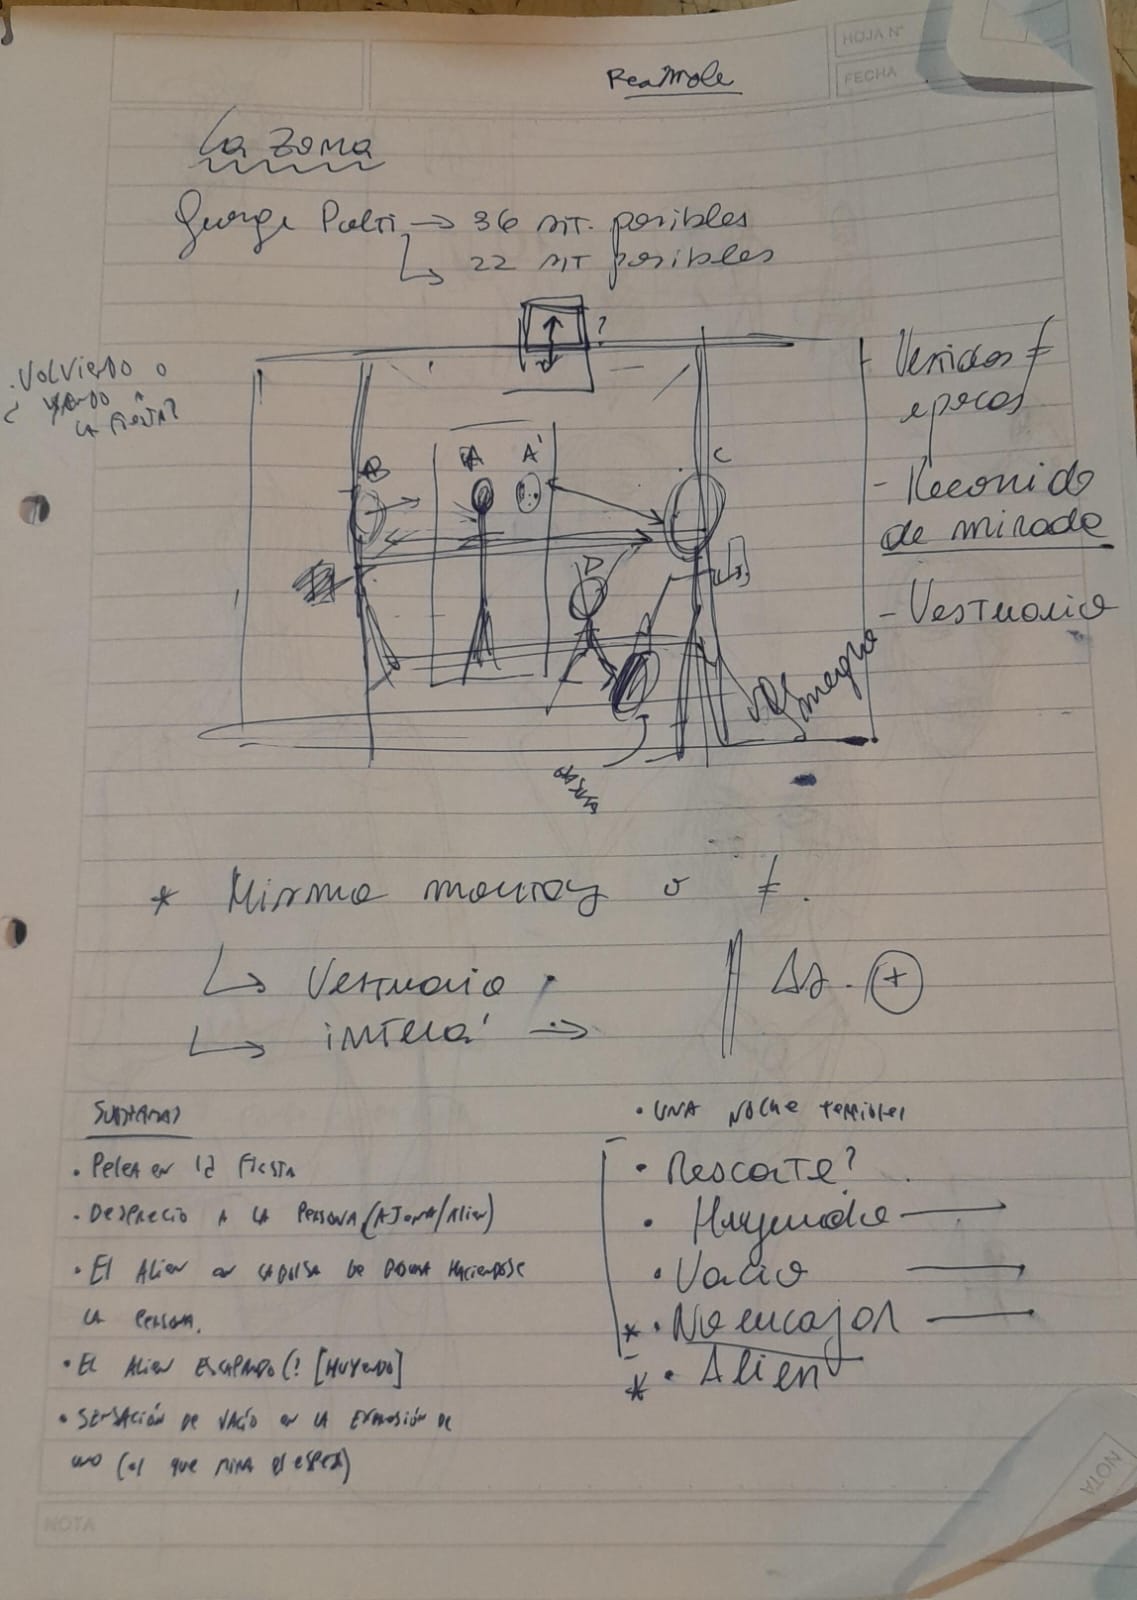 HOJA N°
FECHA
La Zona
George Polti → 36 sit. posibles
↳ 22 sit posibles
?
¿Volviendo o
yendo a
la fiesta?
- Vestidos ≠
epocas
- Recorrido
de mirada
- Vestuario
B
A
A'
C
D
* Mismo montaj o ≠.
↳ Vestuario
↳ interá →
+
Subtramas
• Pelea en la Fiesta
• Desprecio a la Persona (Ajena/Alien)
• El Alien en
la Persona.
• El Alien Escapando (? [Huyendo]
• Sensación de vacío en la expresión de
uno (el que mira el espejo)
• UNA NOCHE TERRIBLE
• Rescate?
• Huyendo →
• Vacio →
* • No encajar →
* • Alien
NOTA
NOTA